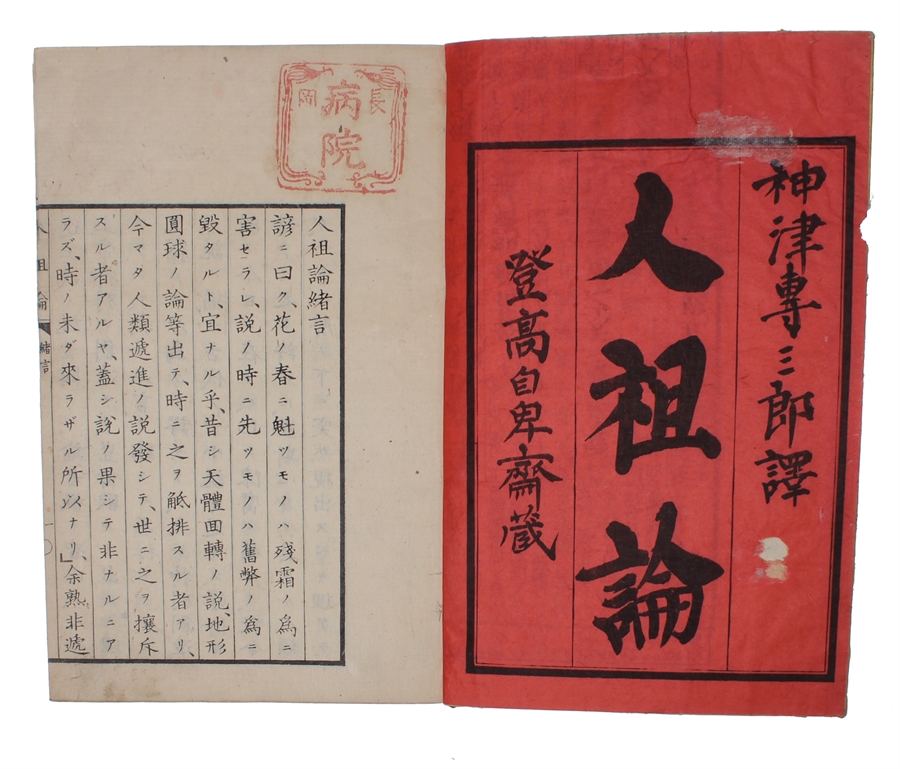 神津專三郎譯
人祖論
登高自卑齋藏
長岡
病院
人祖論緒言
諺ニ曰ク、花ノ春ニ魁ツモノハ殘霜ノ爲ニ
害セラレ、說ノ時ニ先ツモノハ舊弊ノ爲ニ
毀タルト、宜ナル乎、昔シ天體囬轉ノ說、地形
圓球ノ論等出テ、時ニ之ヲ觝排スル者アリ、
今マタ人類遞進ノ說發シテ、世ニ之ヲ攘斥
スル者アルヤ、蓋シ說ノ果シテ非ナルニア
ラズ、時ノ未ダ來ラザル所以ナリ、」余熟非遞
人祖論 緒言 一